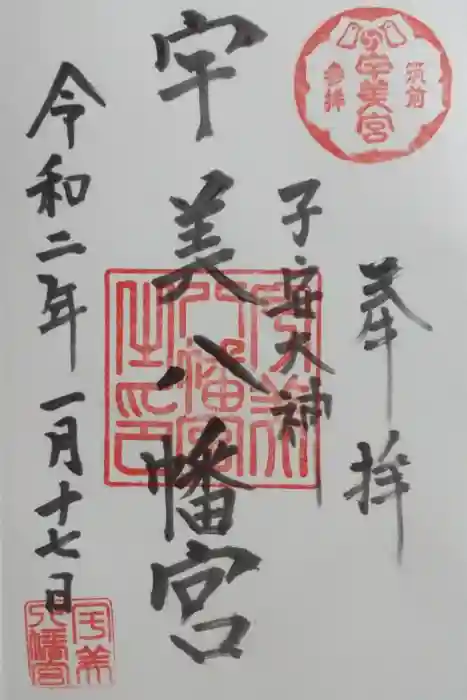 奉拝
筑前
宇美宮
参拝
子安大神
宇美八幡宮
宇美
八幡宮
之印
令和二年一月十七日
宇美
八幡宮